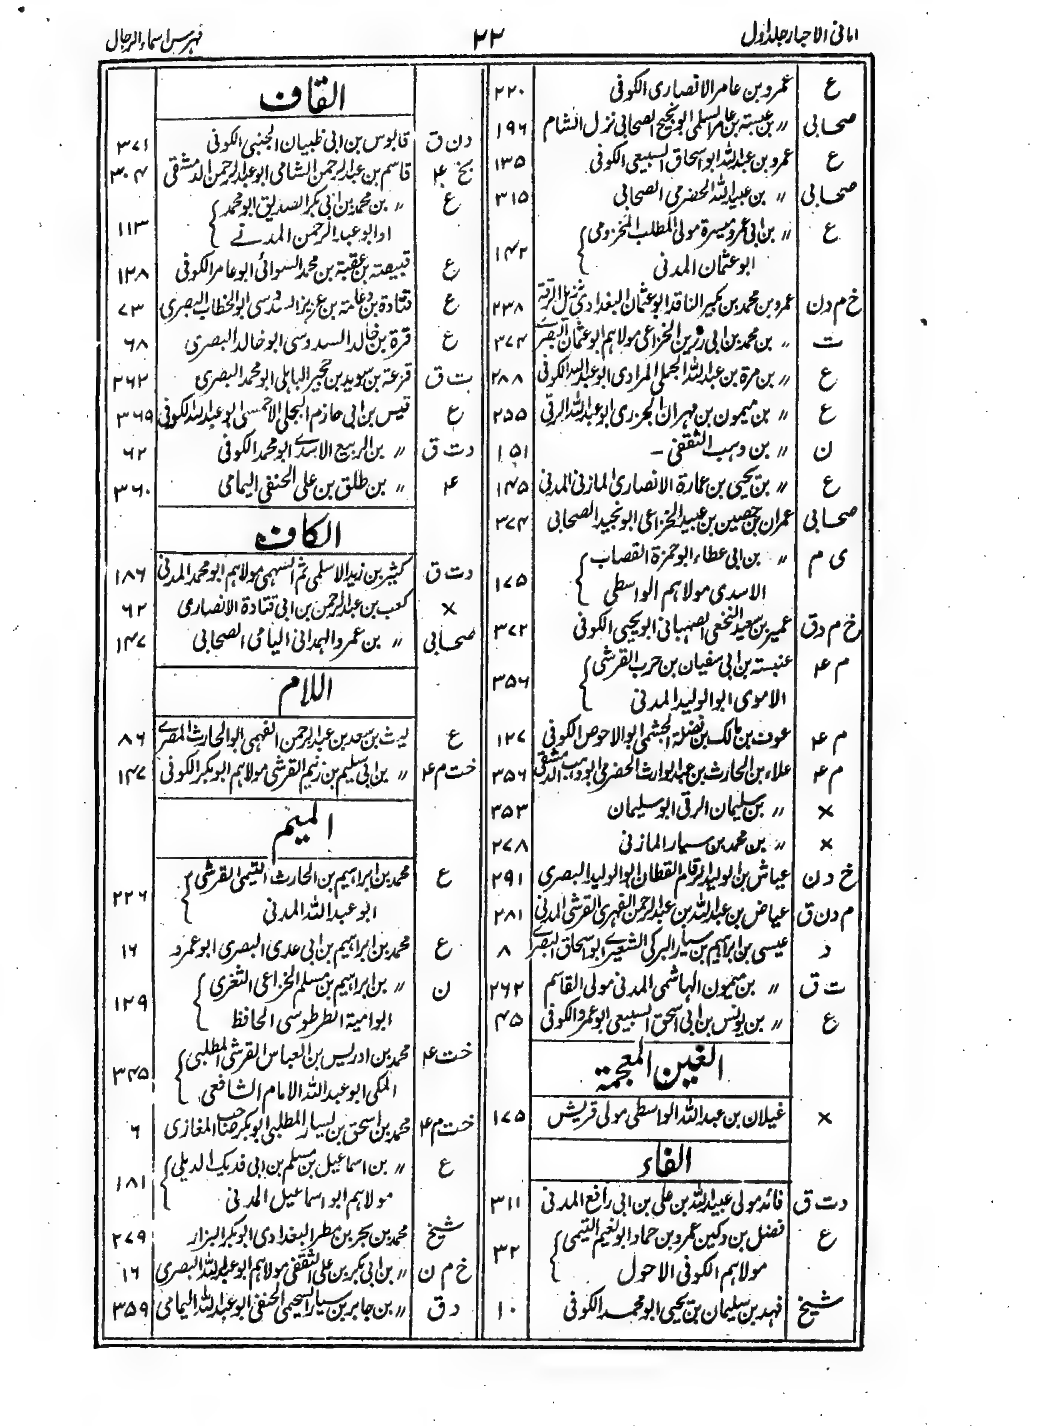 امانی الاحبار جلد اول
۲۲
فہرس اسماء الرجال
ع عمرو بن عامر الانصاری الکوفی ۲۲۰
صحابی ٫٫ بن عبسۃ بن عامر السلمی ابو نجیح الصحابی نزل الشام ۱۹۶
ع عمرو بن عبداللہ ابو سحاق السبیعی الکوفی ۱۳۵
صحابی ٫٫ بن عبیداللہ الحضرمی الصحابی ۳۱۵
ع ٫٫ بن ابی عمرو میسرۃ مولی المطلب المخزومی
ابو عثمان المدنی ۱۴۲
خ م د ن عمرو بن محمد بن بکیر الناقد ابو عثمان البغدادی نزیل الرقۃ ۲۳۸
ت ٫٫ بن محمد بن ابی رزین الخزاعی مولاہم ابو عثمان البصرے ۳۷۴
ع ٫٫ بن مرۃ بن عبداللہ الجملی المرادی ابو عبداللہ الکوفی ۲۸۸
ع ٫٫ بن میمون بن مہران الجزری ابو عبداللہ الرقی ۲۵۵
ن ٫٫ بن وہب الثقفی – ۱۵۱
ع ٫٫ بن یحیی بن عمارۃ الانصاری المازنی المدنی ۱۴۵
صحابی عمران بن حصین بن عبید الخزاعی ابو نجید الصحابی ۳۷۴
ی م ٫٫ بن ابی عطاء ابو حمزۃ القصاب
الاسدی مولاہم الواسطی ۱۷۵
خ م د ق عمیر بن سعید النخعی الصہبانی ابو یحیی الکوفی ۳۷۲
م ۴ عنبسۃ بن ابی سفیان بن حرب القرشی
الاموی ابو الولید المدنی ۳۵۶
م ۴ عوف بن مالک بن نضلۃ الجشمی ابو الاحوص الکوفی ۱۲۷
م ۴ علاء بن الحارث بن عبد الوارث الحضرمی ابو وہب الدمشقی ۳۵۶
× ٫٫ بن سلیمان الرقی ابو سلیمان ۳۵۳
× ٫٫ بن محمد بن سیار المازنی ۲۷۸
خ د ن عیاش بن الولید الرقام القطان ابو الولید البصری ۲۹۱
م د ن ق عیاض بن عبداللہ بن عبدالرحمن الفہری القرشی المدنی ۲۸۱
د عیسی بن ابراہیم بن سیار البرکی الشعیرے ابو سحاق البصرے ۸
ت ق ٫٫ بن میمون الہاشمی المدنی مولی القاسم ۲۶۲
ع ٫٫ بن یونس بن ابی اسحق السبیعی ابو عمرو الکوفی ۴۵
الغین المعجمۃ
× غیلان بن عبداللہ الواسطی مولی قریش ۱۷۵
الفاء
د ت ق فائد مولی عبیداللہ بن علی بن ابی رافع المدنی ۳۱۱
ع فضل بن دکین عمرو بن حماد ابو نعیم التیمی
مولاہم الکوفی الاحول ۳۲
شیخ فہد بن سلیمان بن یحیی ابو محمد الکوفی ۱۰
القاف
د ن ق قابوس بن ابی ظبیان الجنبی الکوفی ۳۷۱
بخ ۴ قاسم بن عبدالرحمن الشامی ابو عبدالرحمن الدمشقی ۳۰۴
ع ٫٫ بن محمد بن ابی بکر الصدیق ابو محمد
او ابو عبدالرحمن المدنے ۱۱۳
ع قبیصۃ بن عقبۃ بن محمد السوائی ابو عامر الکوفی ۱۲۸
ع قتادۃ بن دعامۃ بن عزیز السدوسی ابو الخطاب البصری ۷۳
ع قرۃ بن خالد السدوسی ابو خالد البصری ۶۸
ت ق قزعۃ بن سوید بن حجیر الباہلی ابو محمد البصری ۲۶۲
ع قیس بن ابی حازم البجلی الاحمسی ابو عبداللہ الکوفی ۳۶۹
د ت ق ٫٫ بن الربیع الاسدے ابو محمد الکوفی ۶۲
۴ ٫٫ بن طلق بن علی الحنفی الیمامی ۳۶۰
الکاف
د ت ق کثیر بن زید الاسلمی ثم السہمی مولاہم ابو محمد المدنی ۱۸۶
× کعب بن عبدالرحمن بن ابی قتادۃ الانصاری ۶۲
صحابی ٫٫ بن عمرو الہمدانی الیامی الصحابی ۱۴۷
اللام
ع لیث بن سعد بن عبدالرحمن الفہمی ابو الحارث المصرے ۸۶
خت م ۴ ٫٫ بن ابی سلیم بن زنیم القرشی مولاہم ابو بکر الکوفی ۱۴۷
المیم
ع محمد بن ابراہیم بن الحارث التیمی القرشی
ابو عبداللہ المدنی ۲۲۶
ع محمد بن ابراہیم بن ابی عدی البصری ابو عمرو ۱۶
ن ٫٫ بن ابراہیم بن مسلم الخزاعی الثغری
ابو امیۃ الطرطوسی الحافظ ۱۲۹
خت ۴ محمد بن ادریس بن العباس القرشی المطلبی
المکی ابو عبداللہ الامام الشافعی ۳۴۵
خت م ۴ محمد بن اسحق بن یسار المطلبی ابو بکر صاحب المغازی ۶
ع ٫٫ بن اسماعیل بن مسلم بن ابی فدیک الدیلی
مولاہم ابو اسماعیل المدنی ۱۸۱
شیخ محمد بن بحر بن مطر البغدادی ابو بکر البزار ۲۷۹
خ م ن ٫٫ بن ابی بکر بن علی الثقفی مولاہم ابو عبداللہ البصری ۱۶
د ق ٫٫ بن جابر بن سیار السحیمی الحنفی ابو عبداللہ الیمامی ۳۵۹